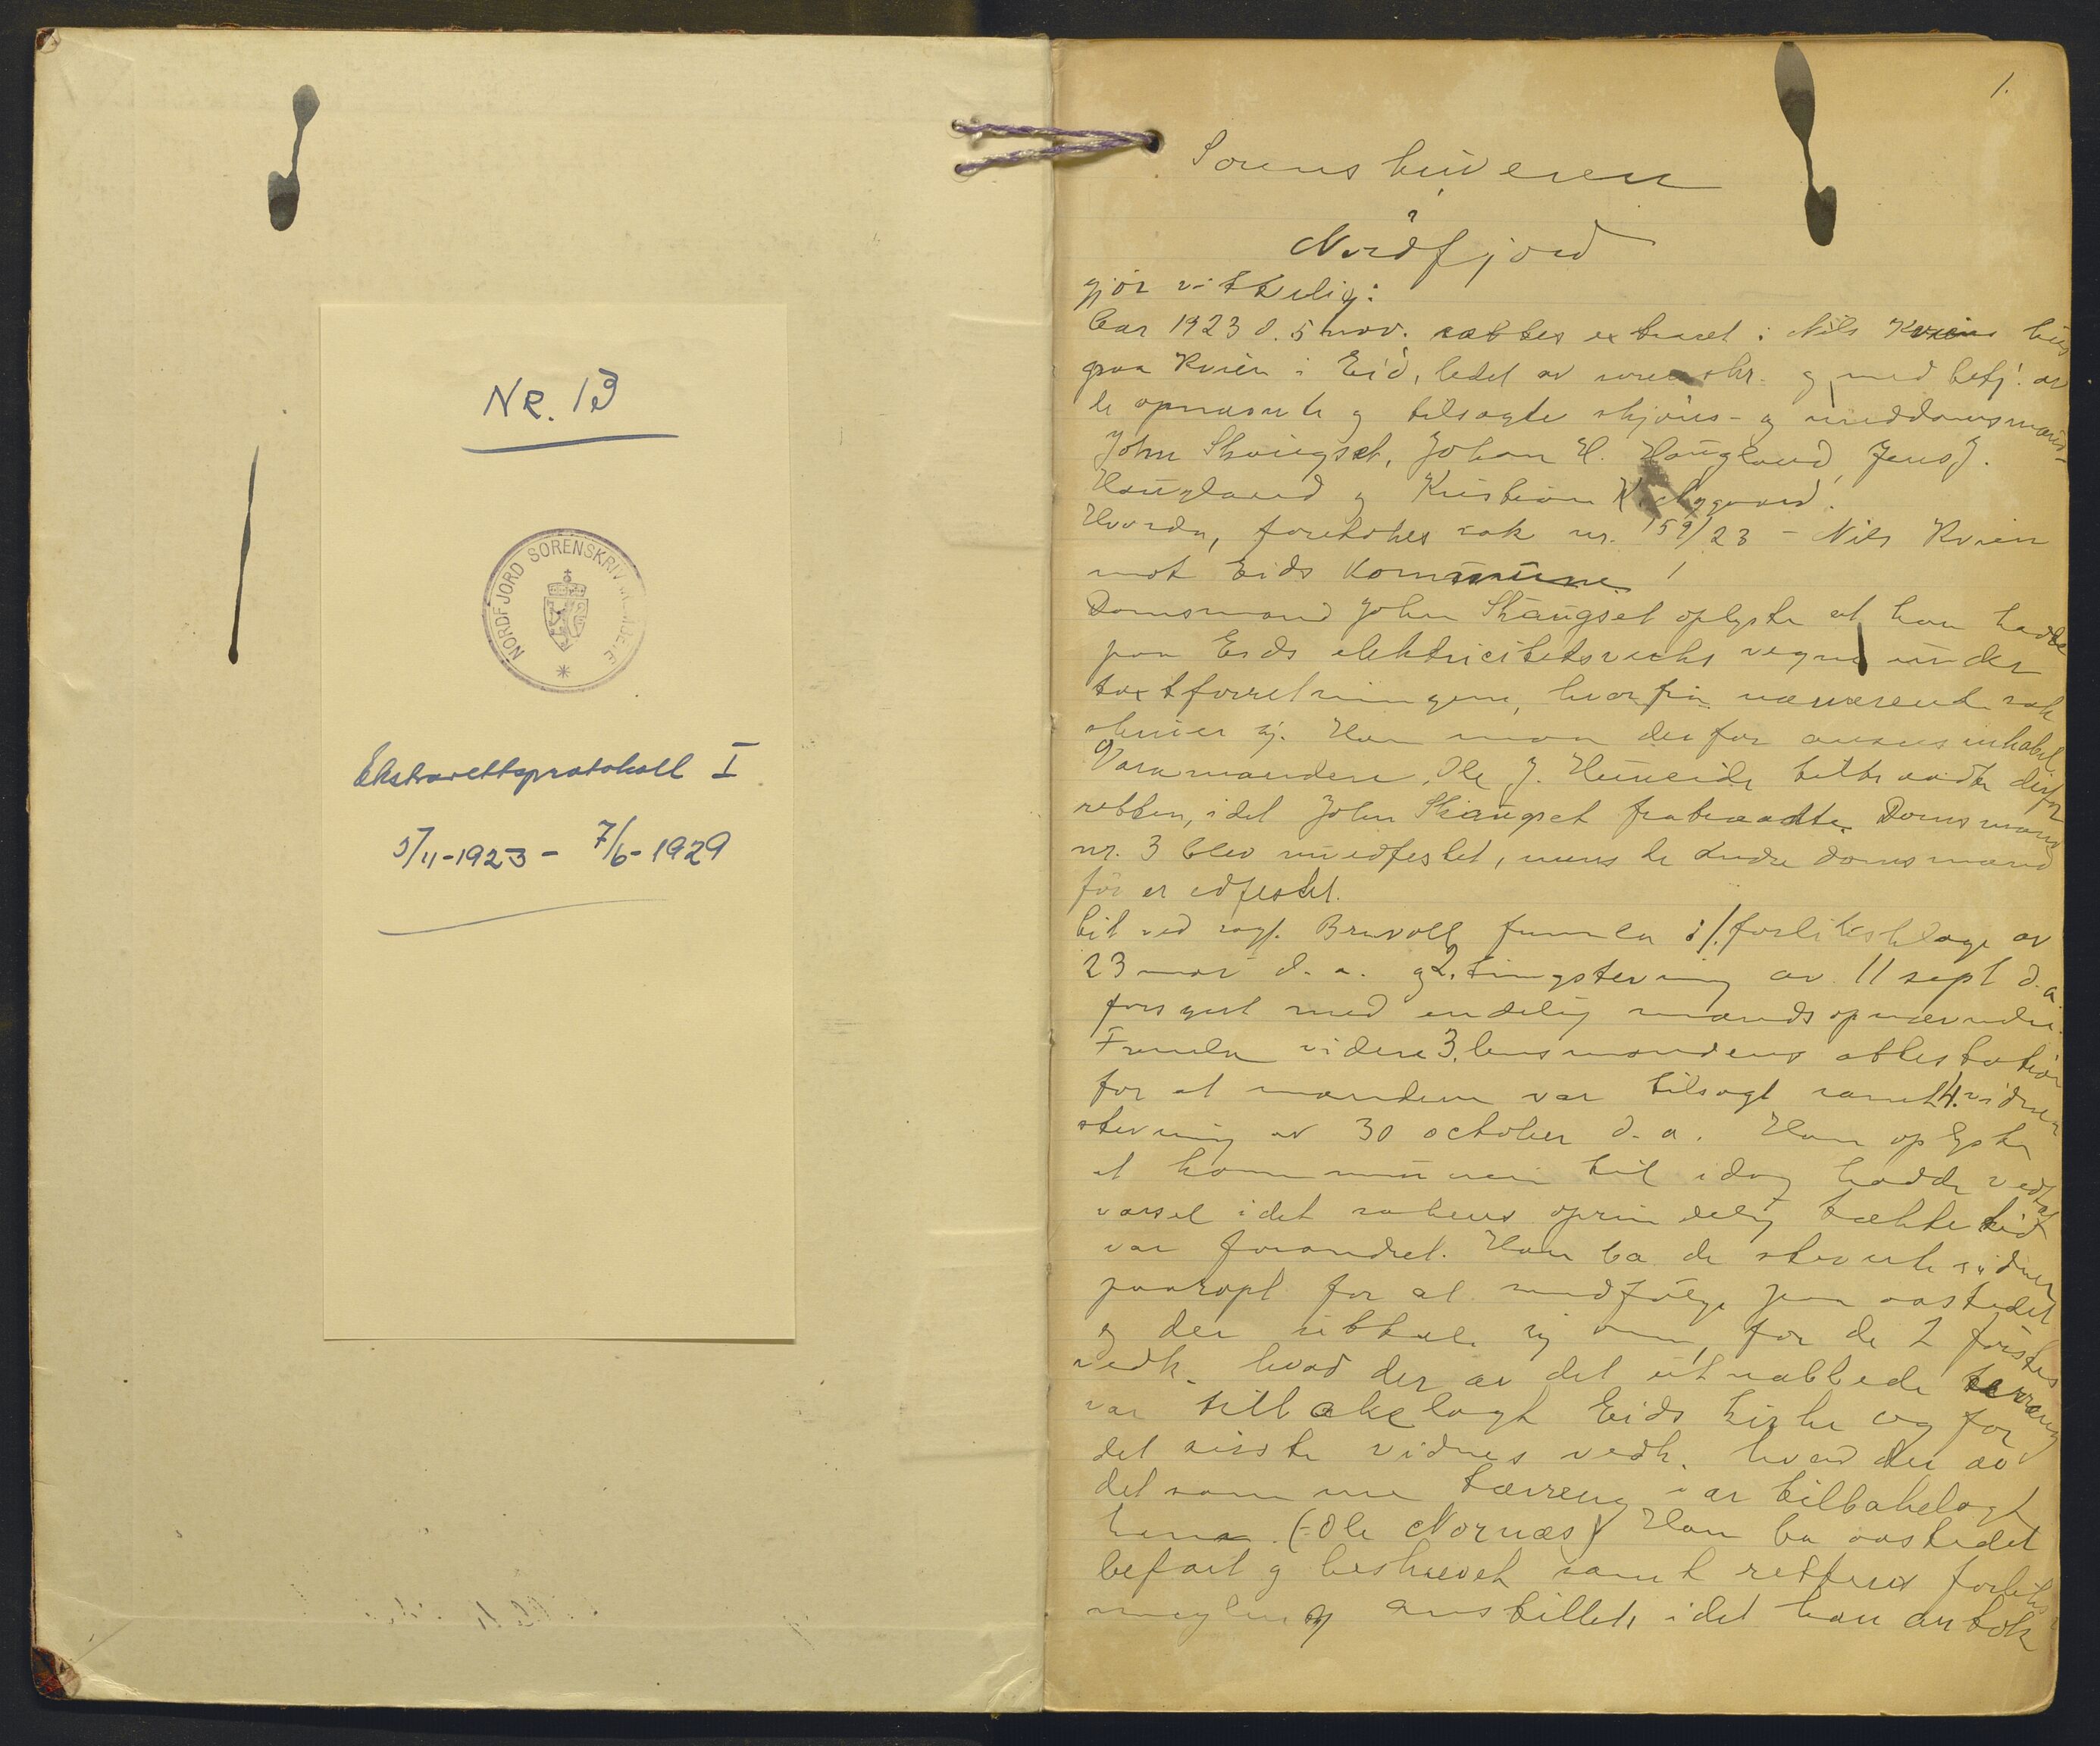 NR. 13
NORDFJORD SORENSKRIV
Ekstrarettsprotokoll I
5/11-1923 - 7/6-1929
1.
Sorenskriveren
i
Nordfjord
gjør vitterlig:
Aar 1923 d. 5 nov. sattes extraret i Nils Kviens hus
paa Kvien i Eid, ledet av sorenskr. og med betj. av
de opnævnte og tilsagte skjøns- og meddomsmænd-
John Skaugset, Johan H. Haugland, Jens J.
Haugland og Kristian K. Nygaard.
Hvorda, foretokes sak nr. 159/23 - Nils Kvien
mot Eids Kommune!
Domsmand John Skaugset oplyste at han hadde
paa Eids elektricitetsverks vegne under
takstforretningen, hvorfra nærværende sak
skriver sig. Han maa derfor ansees inhabil.
Varamanden Ole J. Huneide tiltraadte derfor
retten, idet John Skaugset fratraadte. Domsmand
nr. 3 blev nu edfestet, mens de andre domsmænd
før er edfestet.
Cit ved sagf. Bruvoll fremla 1/. forliksklage av
23 mar d. a. og 2. tingstevning av 11 sept d. a.
forsynt med endelig mandsopnævndn.
Fremla videre 3. lensmandens attestation
for at mændene var tilsagt samt 4. vidne
stevning av 30 october d. a. Han oplyste
at kommunen til idag hadde vedtat
varsel idet sakens oprindelig tækte tid
var forandret. Han ba de stevnte vidner
paaropt for at medfølge paa aastedet
og der uttale sig om, for de 2 førstes
vedk. hvad der av det utnabbede terræng
var tillakelagt Eids kirke og for
det sisste vidnes vedk. hvad der av
det samme terræng var tilbakelagt
ham (Ole Nornæs) Han ba aastedet
befart og beskrevet samt rettens forliks
megling anstillet, idet han antok